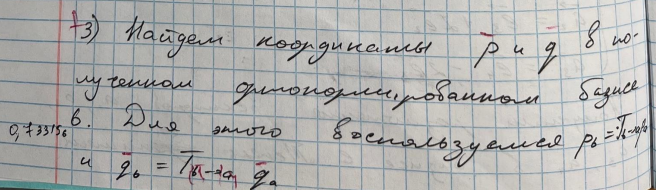 +3) Найдем координаты p̄ и q̄ в по-
лученном ортонормированном базисе
b. Для этого воспользуемся p_b = T_b→a p_a
и q̄_b = T_b→a q̄_a